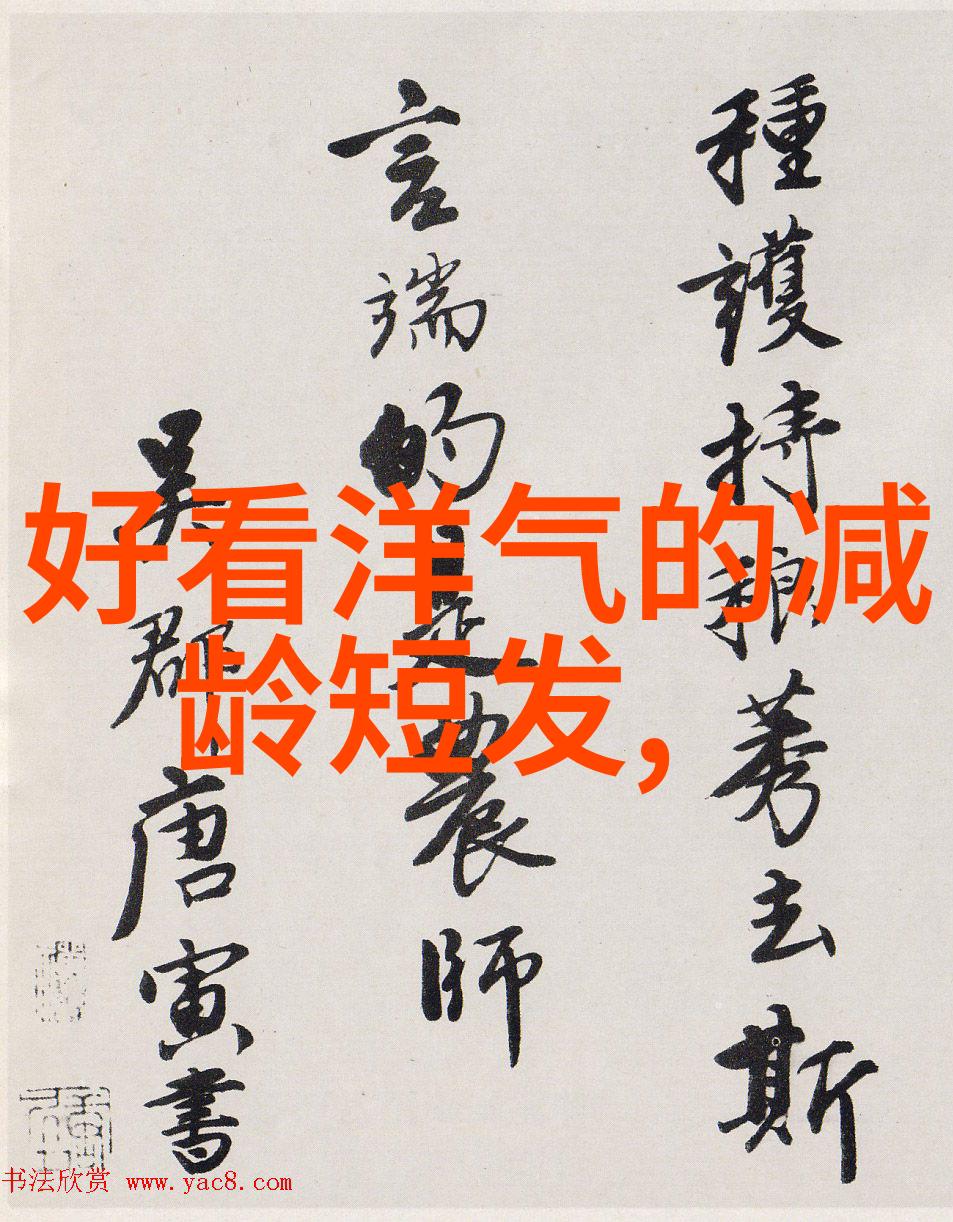 種護持稂莠去斯
言端的是農師
吳郡唐寅書
好看洋气的减
龄短发,
书法欣赏 www.yac8.com